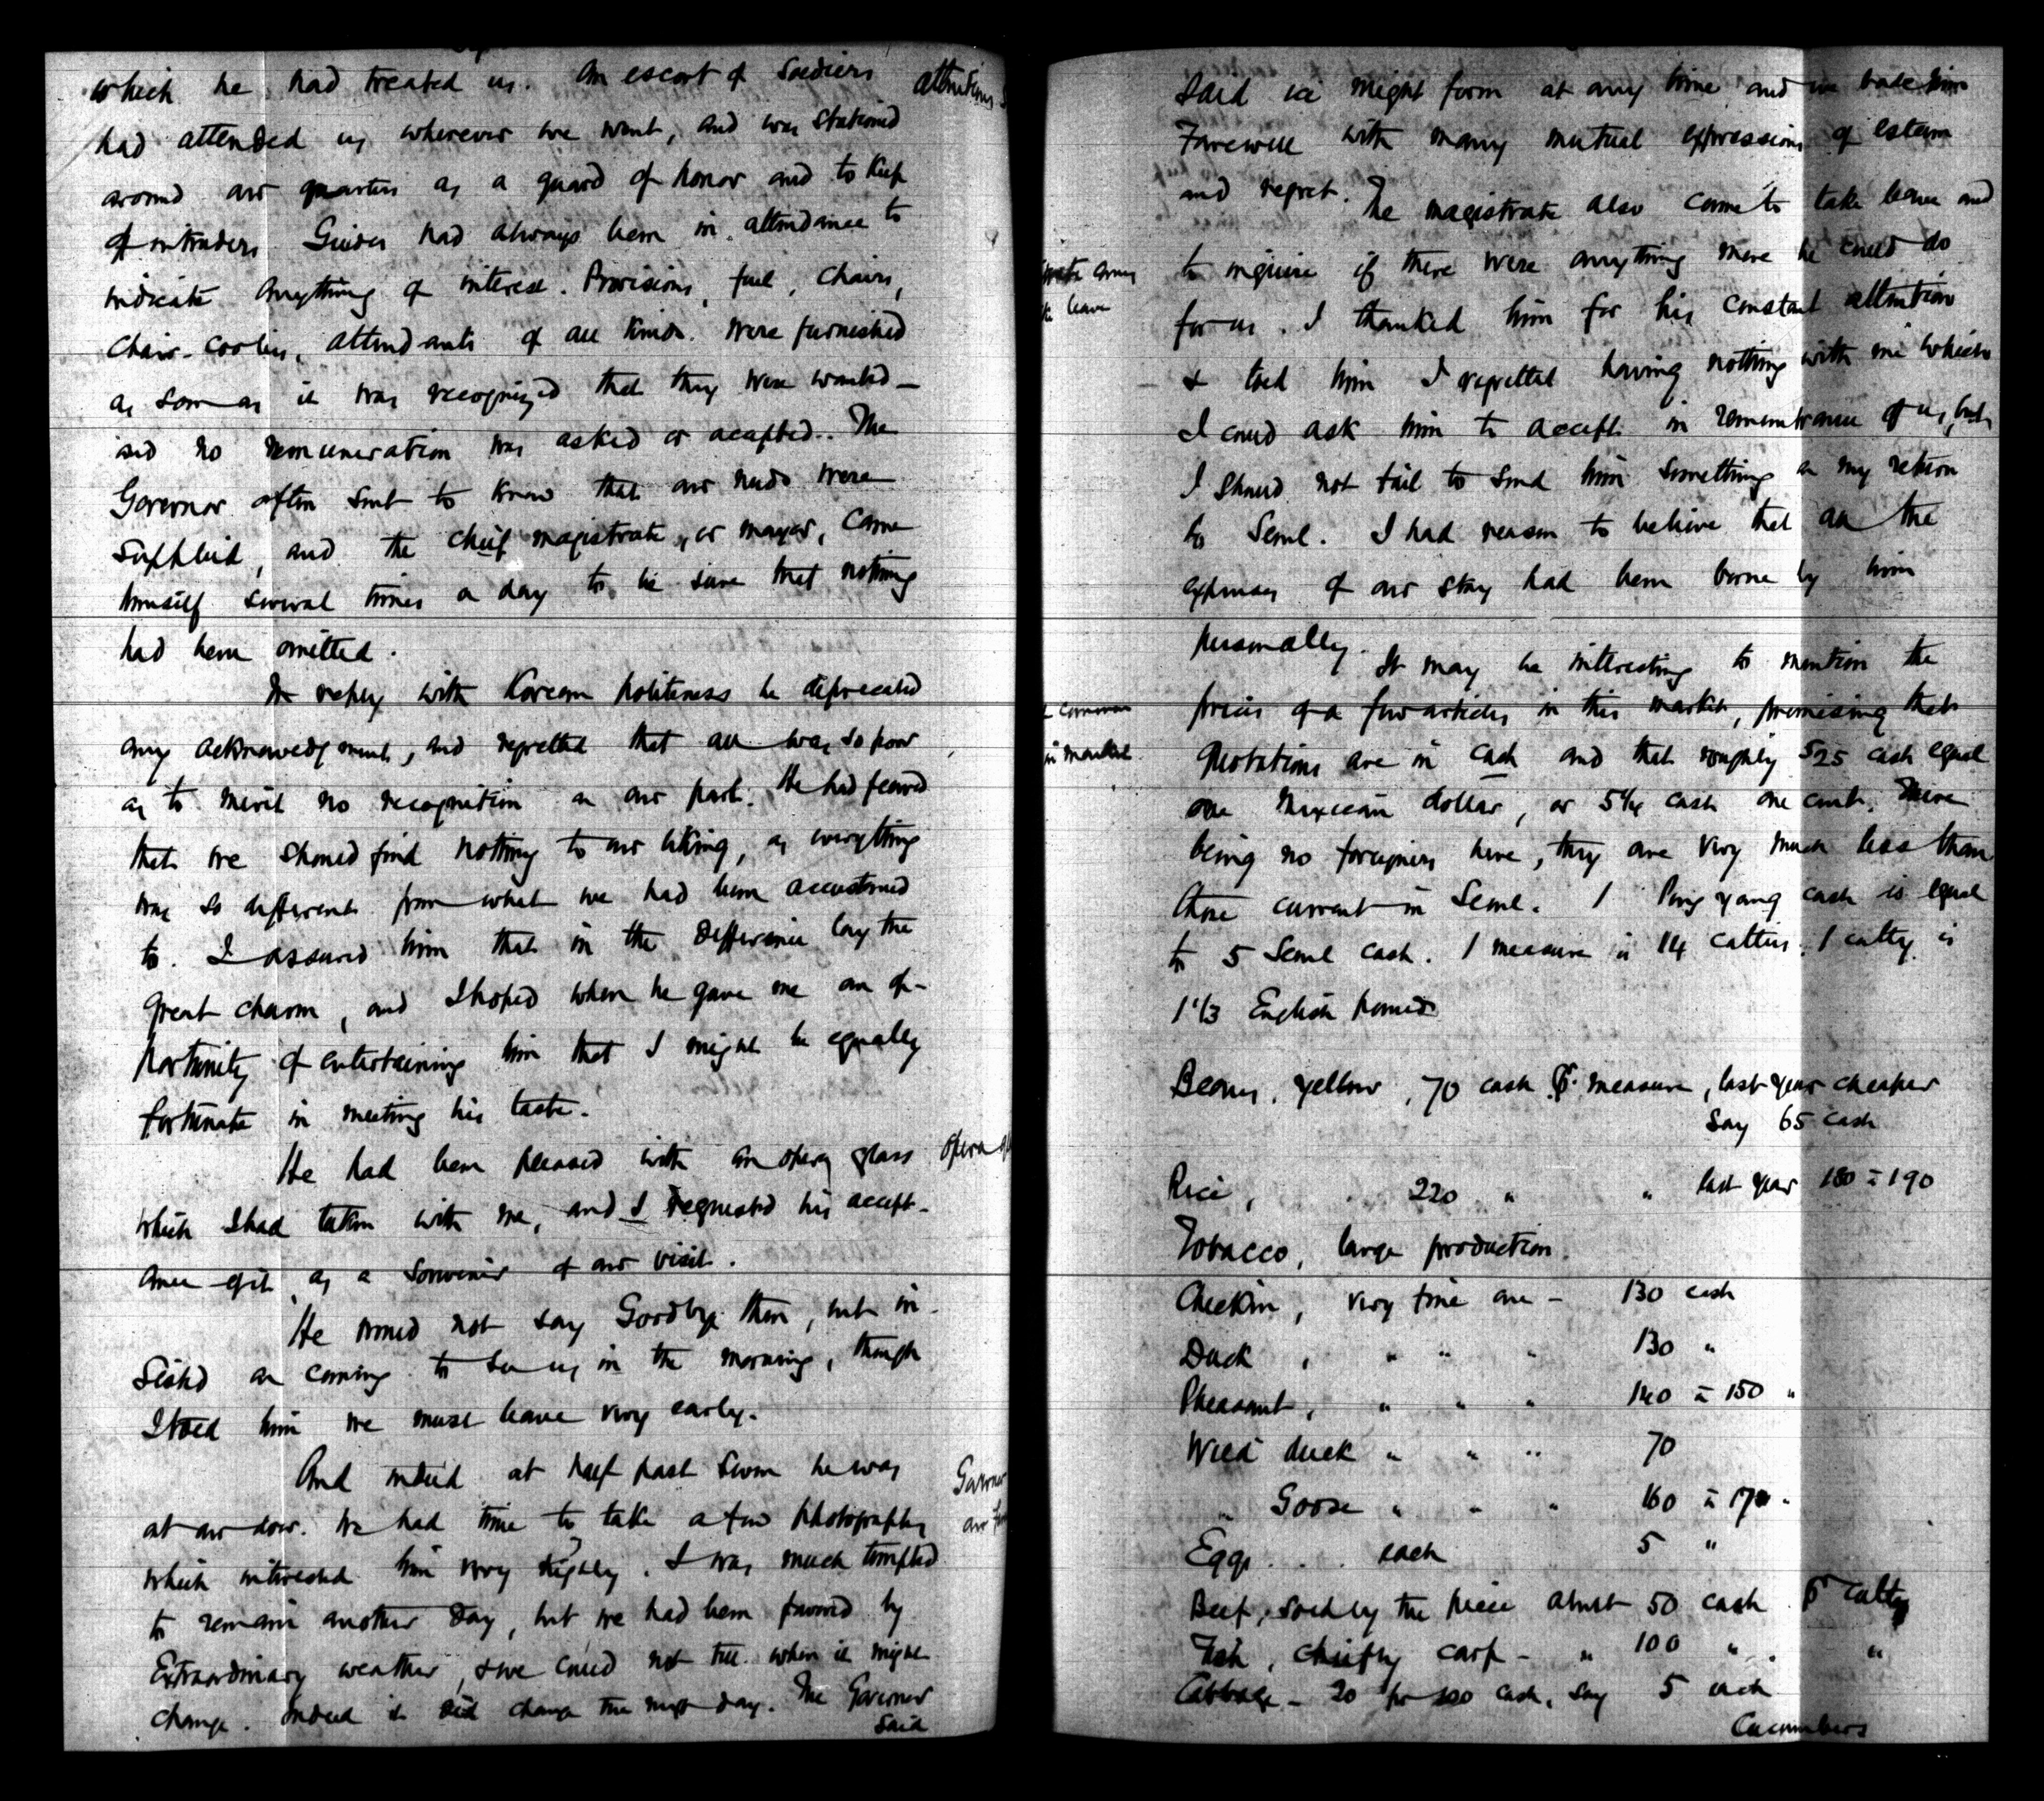 which he had treated us. An escort of Soldiers
attentions
had attended us wherever we went, and was stationed
around our quarters as a guard of honor and to keep
off intruders. Guides had always been in attendance to
indicate anything of interest. Provisions, fuel, chairs,
chair-coolies, attendants of all kinds were furnished
as soon as it was recognized that they were wanted –
and no remuneration was asked or accepted. The
Governor often sent to know that our needs were
supplied, and the chief magistrate, or mayor, came
himself several times a day to be sure that nothing
had been omitted.
In reply with Korean politeness he deprecated
any acknowledgment, and regretted that all was so poor
as to merit no recognition on our part. He had feared
that we should find nothing to our liking, as everything
was so different from what we had been accustomed
to. I assured him that in the difference lay the
great charm, and I hoped when he gave me an op-
portunity of entertaining him that I might be equally
fortunate in meeting his taste.
He had been pleased with an opera glass
opera
which I had taken with me, and I requested his accept-
ance of it as a souvenir of our visit.
He would not say Goodbye then, but in-
sisted on coming to see us in the morning, though
I told him we must leave very early.
And indeed at half past seven he was
Governor
at our door. We had time to take a few photographs
our
which interested him very highly. I was much tempted
to remain another day, but we had been favored by
Extraordinary weather, & we could not tell when it might
change. Indeed it did change the next day. The Governor
said
said ice might form at any time and we bade him
Farewell with many mutual expressions of esteem
and regret.
The magistrate also came to take leave and
to inquire if there were anything more he could do
leave
for us. I thanked him for his constant attention
& told him I regretted having nothing with me which
I could ask him to accept in remembrance of us, but
I should not fail to send him something on my return
to Seoul. I had reason to believe that all the
expenses of our stay had been borne by him
personally.
It may be interesting to mention the
common
prices of a few articles in this market, premising that
in market
quotations are in cash and that roughly 525 cash equal
one Mexican dollar, or 5¼ cash one cent. There
being no foreigners here, they are very much less than
those current in Seoul. 1 Ping yang cash is equal
to 5 Seoul cash. 1 measure is 14 catties. 1 catty is
1 1/3 English pounds
Beans, yellow, 70 cash ⅌ measure, last year cheaper
Say 65 cash
Rice, 220 " " last year 180 à 190
Tobacco, large production.
Chicken, very fine one – 130 cash
Duck, " " " 130 "
Pheasant, " " " 140 à 150 "
Wild duck " " " 70
" Goose " " " 160 à 170 "
Eggs . . . each 5 "
Beef, sold by the piece about 50 cash ⅌ catty
Fish, chiefly carp – " 100 " . "
Cabbage – 20 for 100 cash, say 5 each
Cucumbers